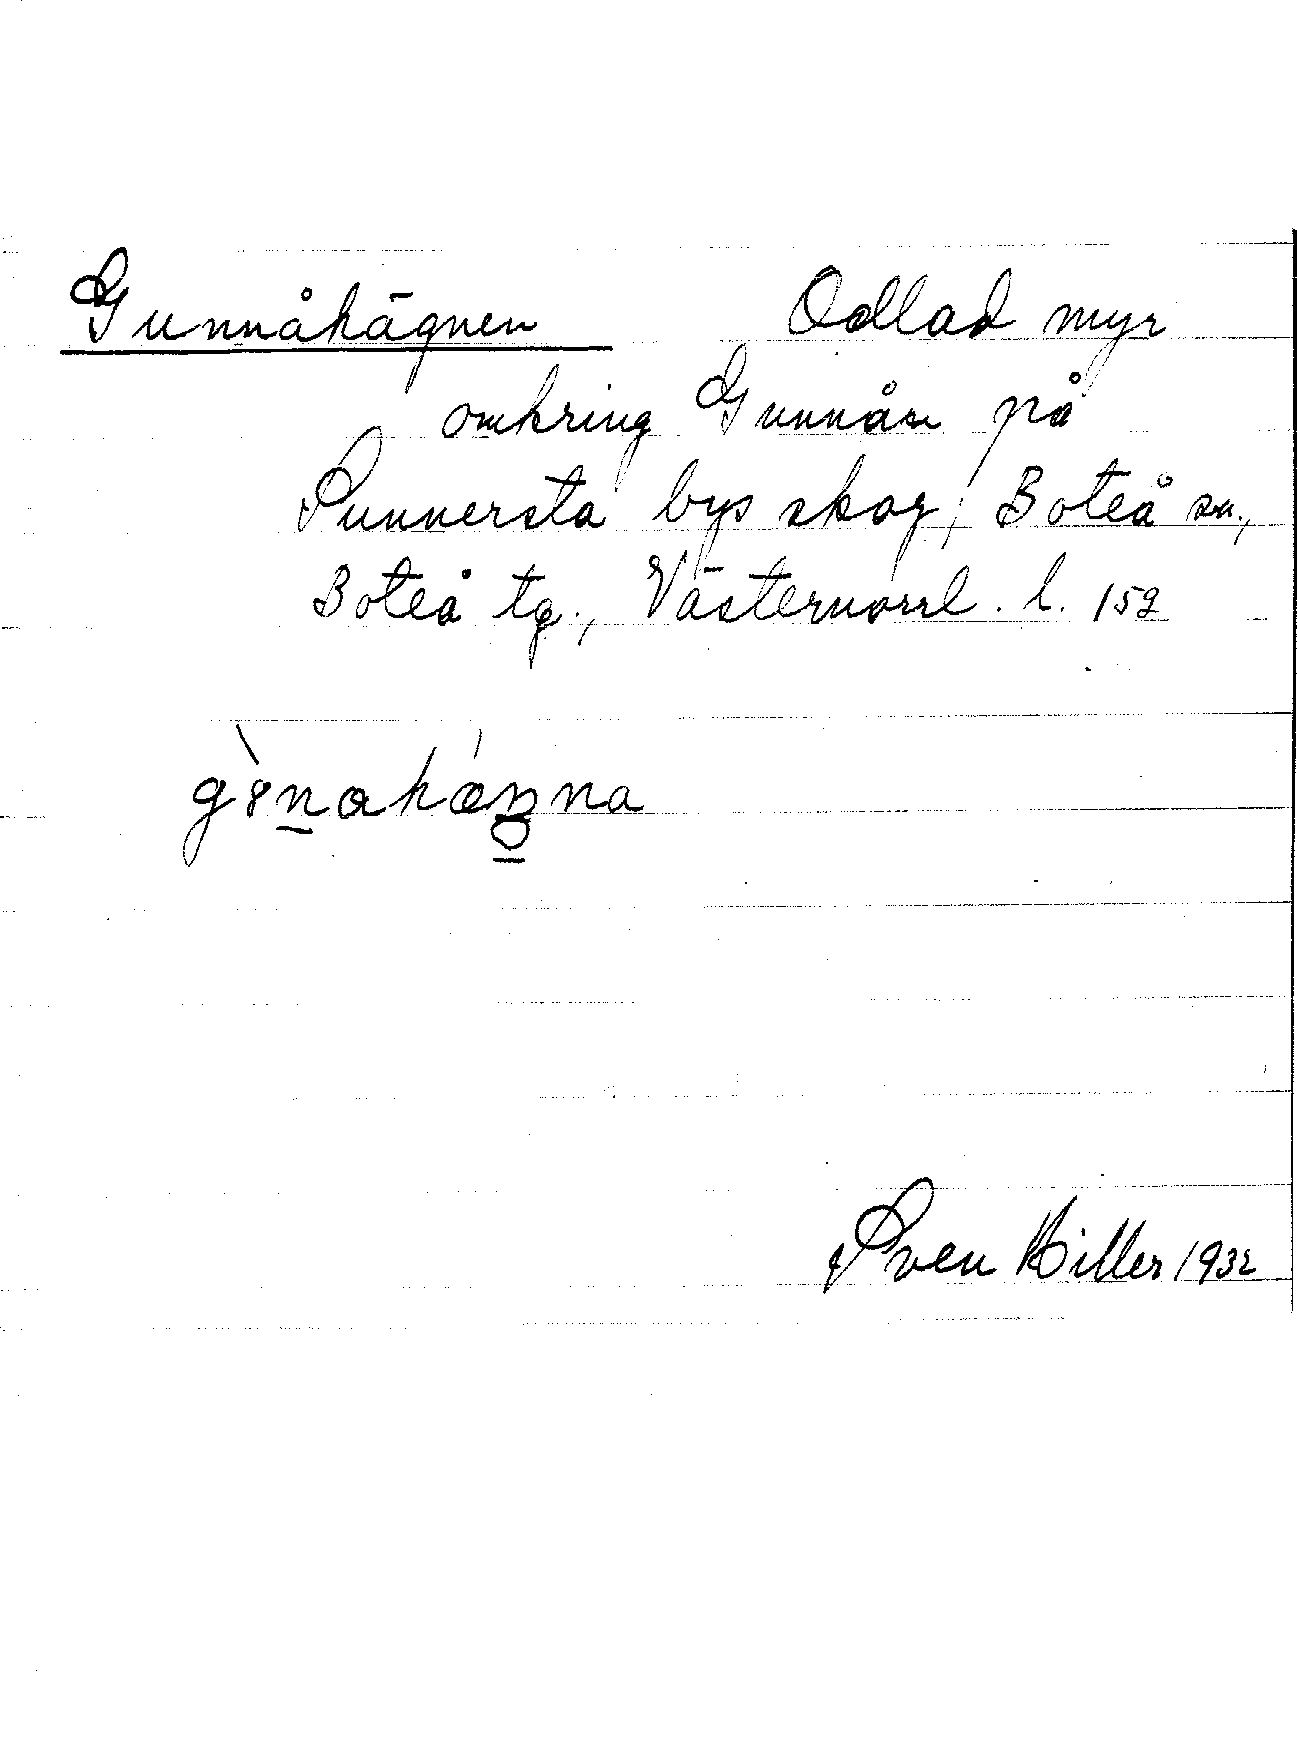 Gunnåhägnen Odlad myr
omkring Gunnån på
Sunnersta bys skog, Boteå sn.,
Boteå tg., Västernorrl. l. 152
Sven Hiller 1932